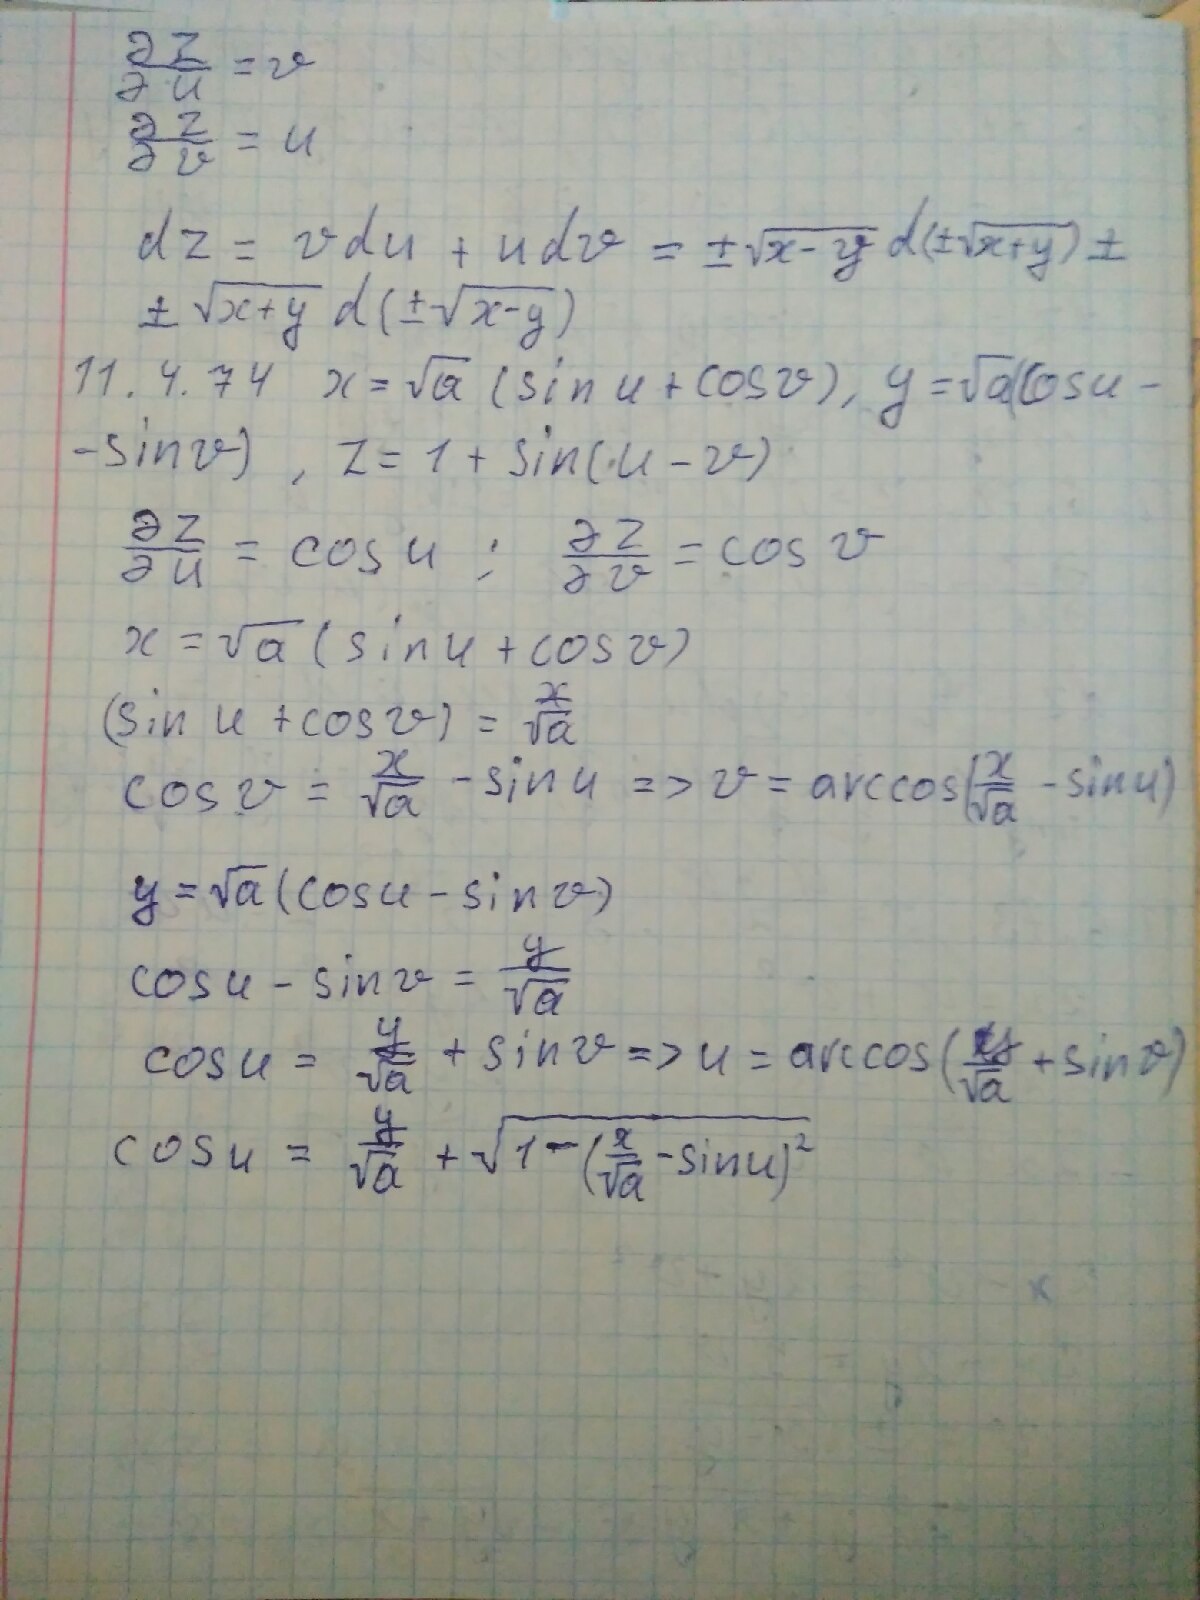 ∂z/∂u = v
∂z/∂v = u
dz = vdu + udv = ±√(x-y) d(±√(x+y)) ±
± √(x+y) d(±√(x-y))
11.4.74 x = √a (sin u + cos v), y = √a(cos u -
- sin v), z = 1 + sin(u - v)
∂z/∂u = cos u ; ∂z/∂v = cos v
x = √a (sin u + cos v)
(sin u + cos v) = x/√a
cos v = x/√a - sin u => v = arccos(x/√a - sin u)
y = √a (cos u - sin v)
cos u - sin v = y/√a
cos u = y/√a + sin v => u = arccos(y/√a + sin v)
cos u = y/√a + √(1 - (x/√a - sin u)²)
x